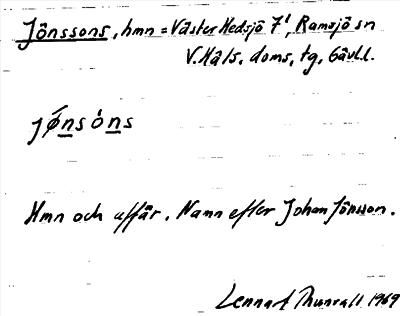 Jönssons, hmn = Väster Hedsjö 7¹, Ramsjö sn
V. Häls. doms. tg, Gävl.l.
jǿnsóns
Hmn och affär. Namn efter Johan Jönsson.
Lennart Thunvall 1969